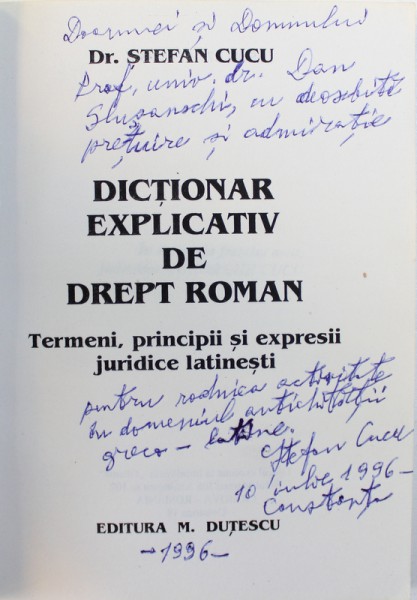 Doamnei și Domnului
Dr. ȘTEFAN CUCU
Prof. univ. dr. Dan
Slușanschi, cu deosebită
prețuire și admirație
DICȚIONAR
EXPLICATIV
DE
DREPT ROMAN
Termeni, principii și expresii
juridice latinești
pentru rodnica activitate
în domeniul antichității
greco - latine.
Ștefan Cucu
10 iulie 1996 -
Constanța
EDITURA M. DUȚESCU
-1996-